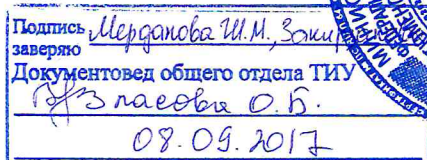 Подпись Мерданова Ш.М.,
заверяю
Документовед общего отдела ТИУ
Власова О.Б.
08.09.2017